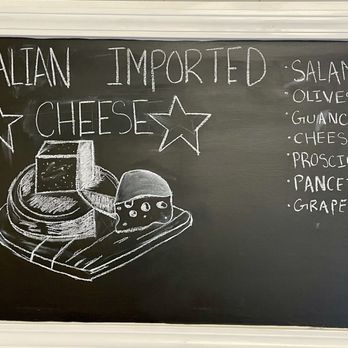 ALIAN IMPORTED
CHEESE
· SALAM
OLIVES
· GUANC
· CHEES
· PROSCI
· PANCET
· GRAPE